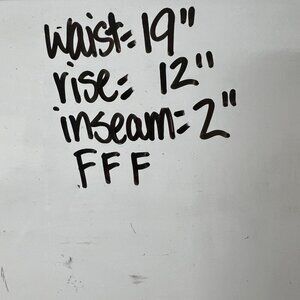 waist: 19"
rise: 12"
inseam: 2"
FFF